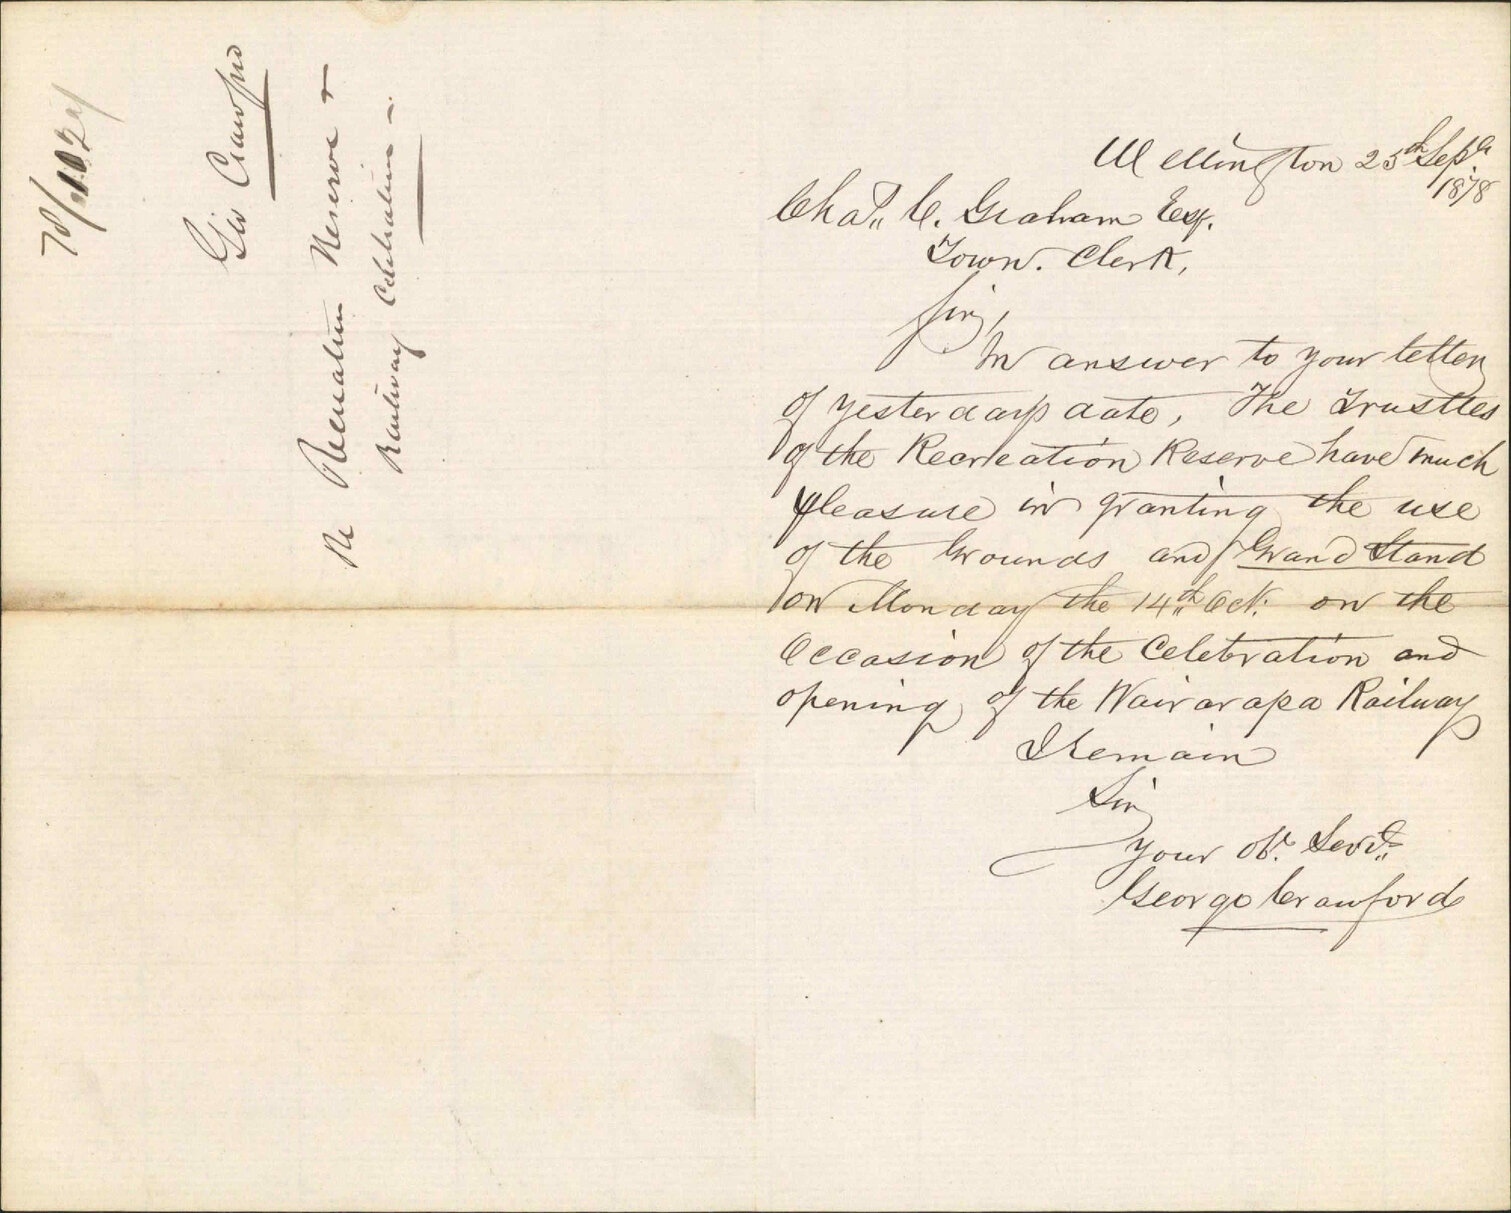 78/1024
Geo Crawford
Re Recreation Reserve &
Railway Celebration -
Wellington 25th Septr
1878
Chas. C. Graham Esq.
Town. Clerk,
Sir,
In answer to your letter
of yesterdays date, The Trustees
of the Recreation Reserve have much
pleasure in granting the use
of the Grounds and Grand Stand
on Monday the 14th Oct. on the
Occasion of the Celebration and
opening of the Wairarapa Railway
I Remain
Sir
your Ob. Servt.
George Crawford